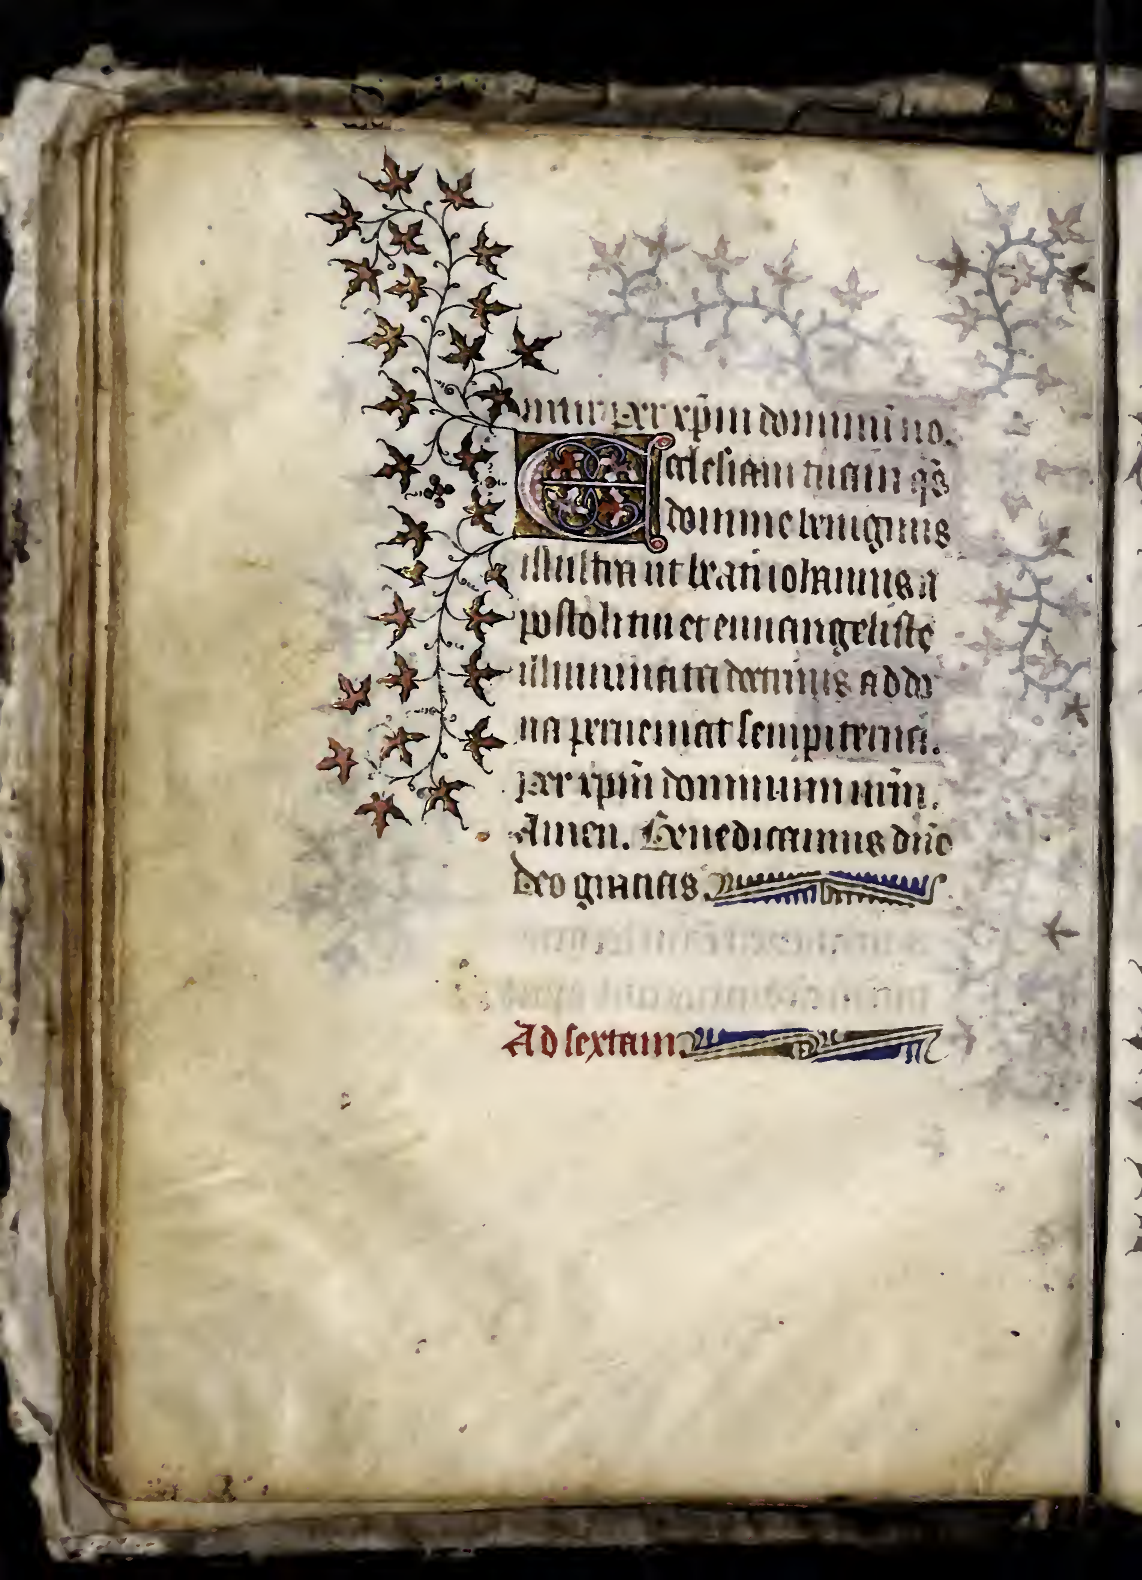 amur per xp̄m dominū no.
Ecclesiam tuam qs̄
domine benignus
illustra ut beati iohannis a
postoli tui et euuangeliste
illuminata doctrinis ad do
na perueniat sempiterna.
Per xp̄m dominum nr̄m.
Amen. Benedicamus dn̄o
deo gratias
Ad sextam